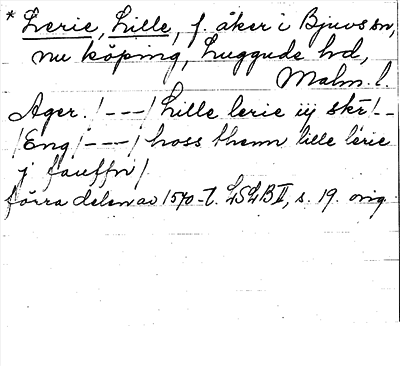 * Lerie, Lille, f. åker i Bjuvs sn,
nu köping, Luggude hd,
Malm. l.
Ager. /---/ Lille lerie iij skr̄ /--
/Eng/---/ hoss thenn lille lerie
j fauffn/
förra delen av 1570-t. LSLB II, s. 19. orig.